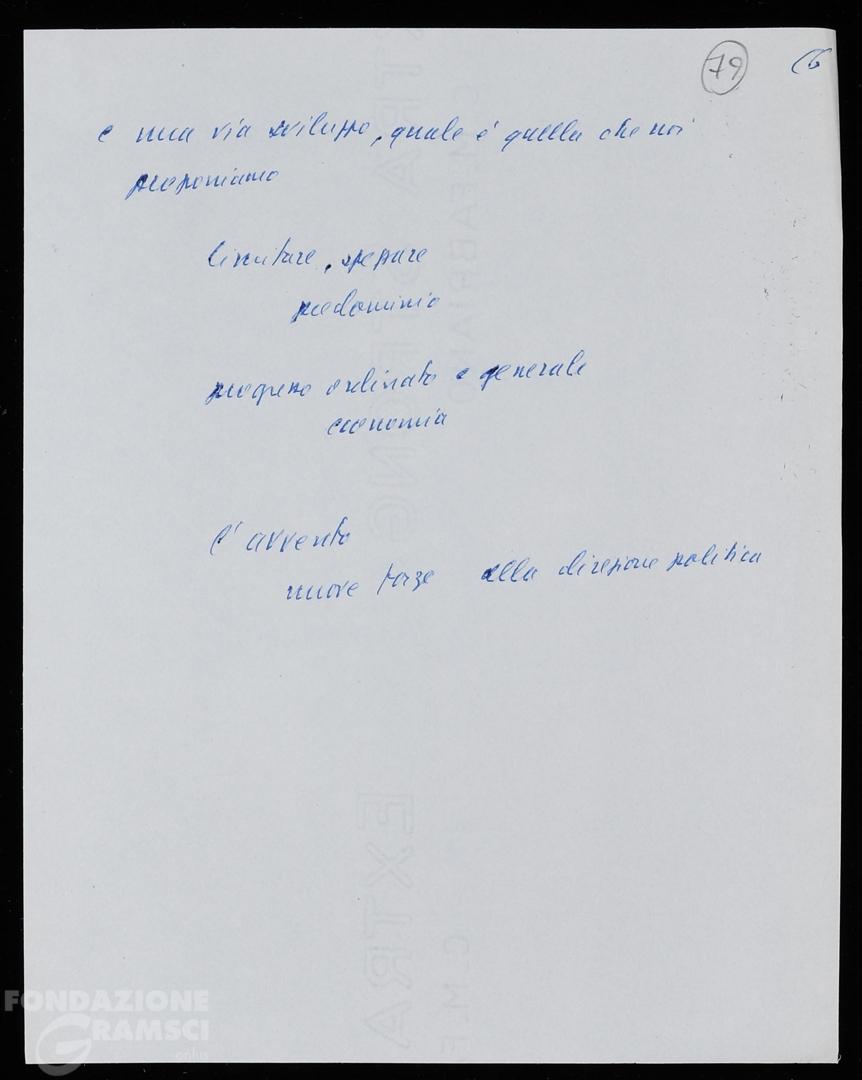 79
e una via sviluppo, quale è quella che noi
proponiamo
limitare, spezzare
predominio
progresso ordinato e generale
economia
l'avvento
nuove forze alla direzione politica
EXTRA
FONDAZIONE
GRAMSCI
onlus